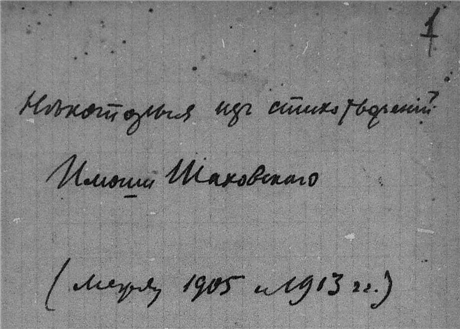 1
Нѣкоторыя изъ стихотвореній
Илюши Шаховскаго
(между 1905 и 1913 гг.)